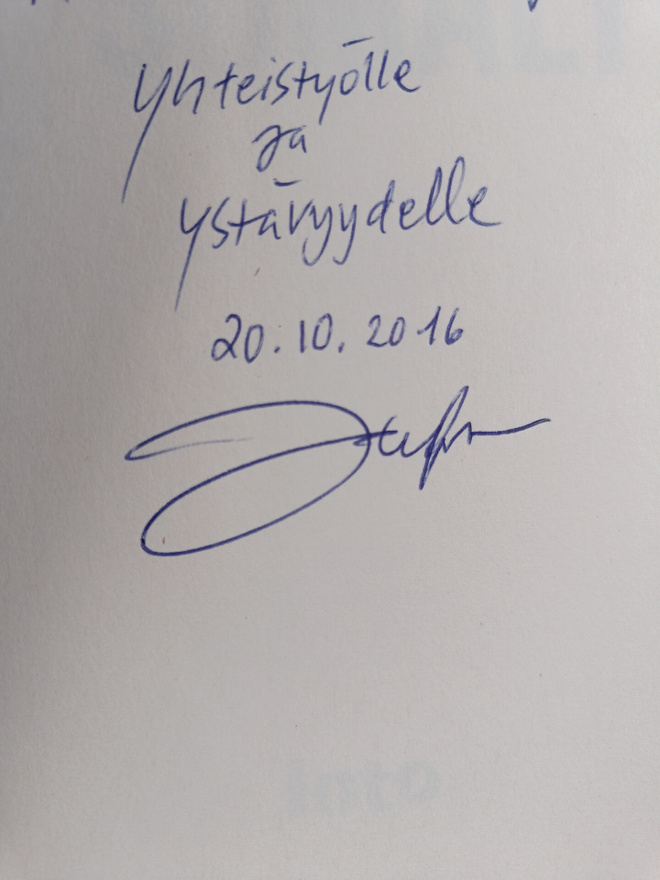 Yhteistyölle
ja
ystävyydelle
20.10.2016